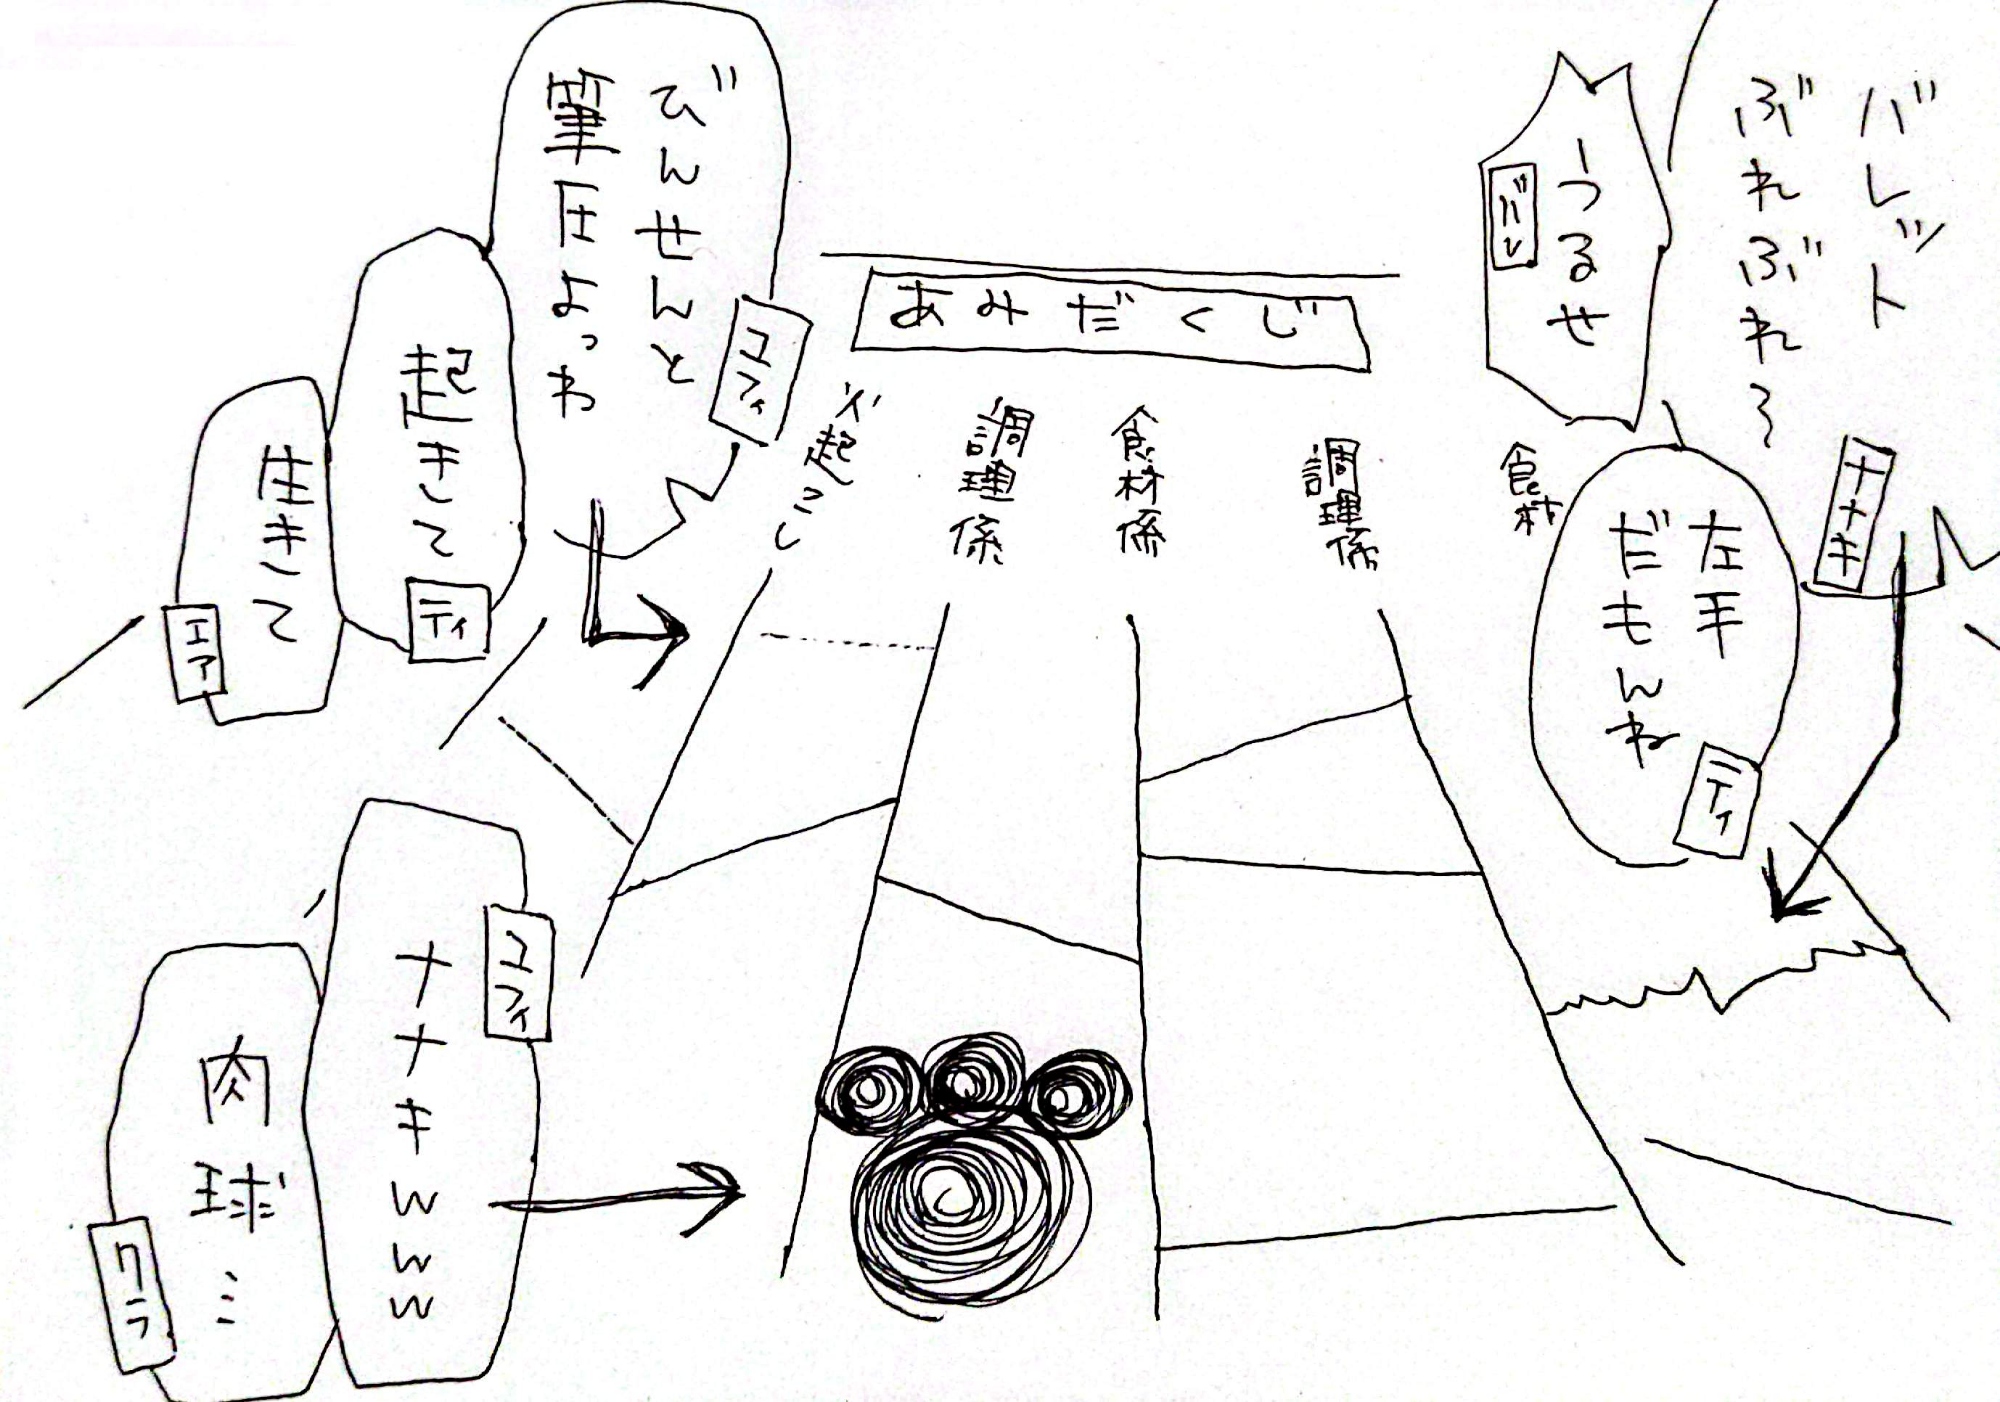 バレット
ぶれぶれ～
ナナキ
うるせ
バレ
左手
だもんね
ティ
あみだくじ
火起こし
調理係
食材係
調理係
食材
びんせんと
筆圧よっわ
ユフィ
起きて
ティ
生きて
エア
ナナキwww
ユフィ
肉球…
クラ